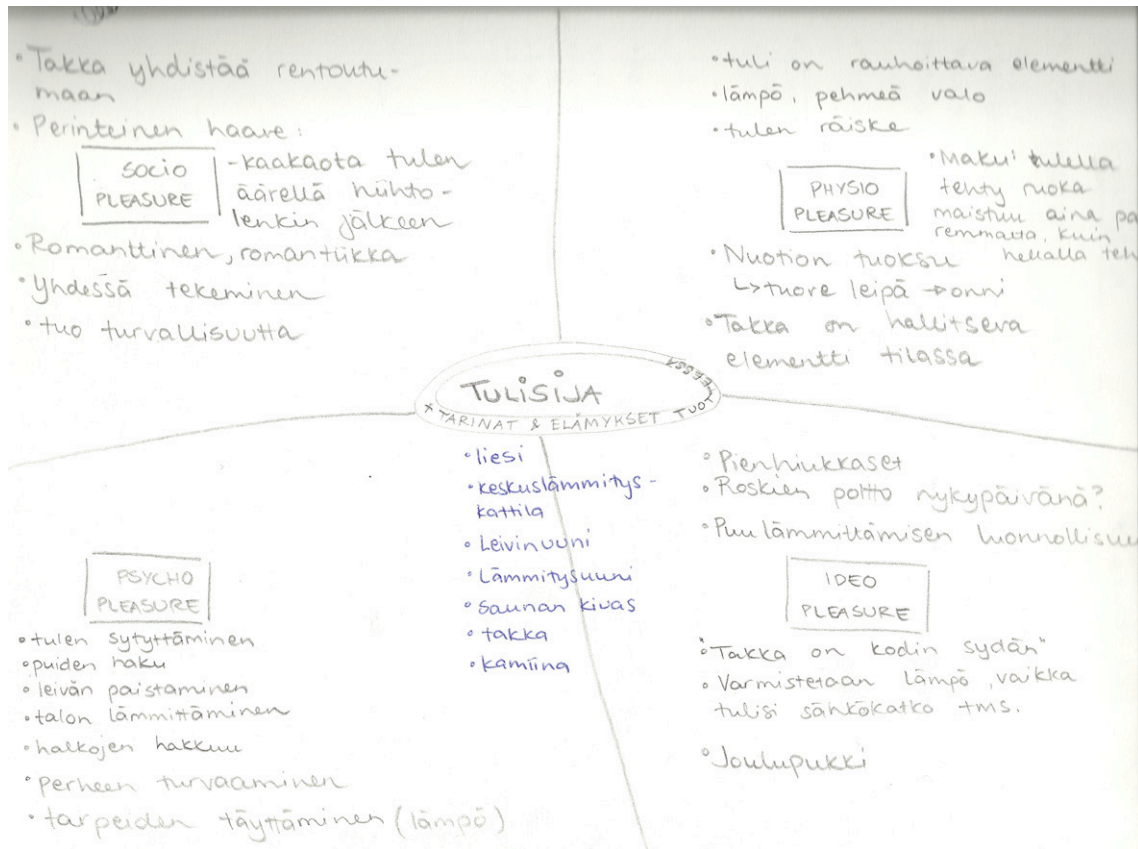 • Takka yhdistää rentoutu-
maan
• Perinteinen haave:
SOCIO
PLEASURE
- kaakaota tulen
äärellä hiihto-
lenkin jälkeen
• Romanttinen, romantiikka
• Yhdessä tekeminen
• tuo turvallisuutta
• tuli on rauhoittava elementti
• lämpö, pehmeä valo
• tulen räiske
PHYSIO
PLEASURE
• Maku: tulella
tehty ruoka
maistuu aina pa
remmalta, kuin
hellalla teh
• Nuotion tuoksu
↳ tuore leipä → onni
• Takka on hallitseva
elementti tilassa
TULISIJA
+ TARINAT & ELÄMYKSET TUOTTEESSA
• liesi
• keskuslämmitys-
kattila
• Leivinuuni
• Lämmitysuuni
• saunan kiuas
• takka
• kamiina
PSYCHO
PLEASURE
• tulen sytyttäminen
• puiden haku
• leivän paistaminen
• talon lämmittäminen
• halkojen hakkuu
• perheen turvaaminen
• tarpeiden täyttäminen (lämpö)
• Pienhiukkaset
• Roskien poltto nykypäivänä?
• Puulämmittämisen luonnollisuu
IDEO
PLEASURE
• "Takka on kodin sydän"
• Varmistetaan lämpö, vaikka
tulisi sähkökatko tms.
• Joulupukki